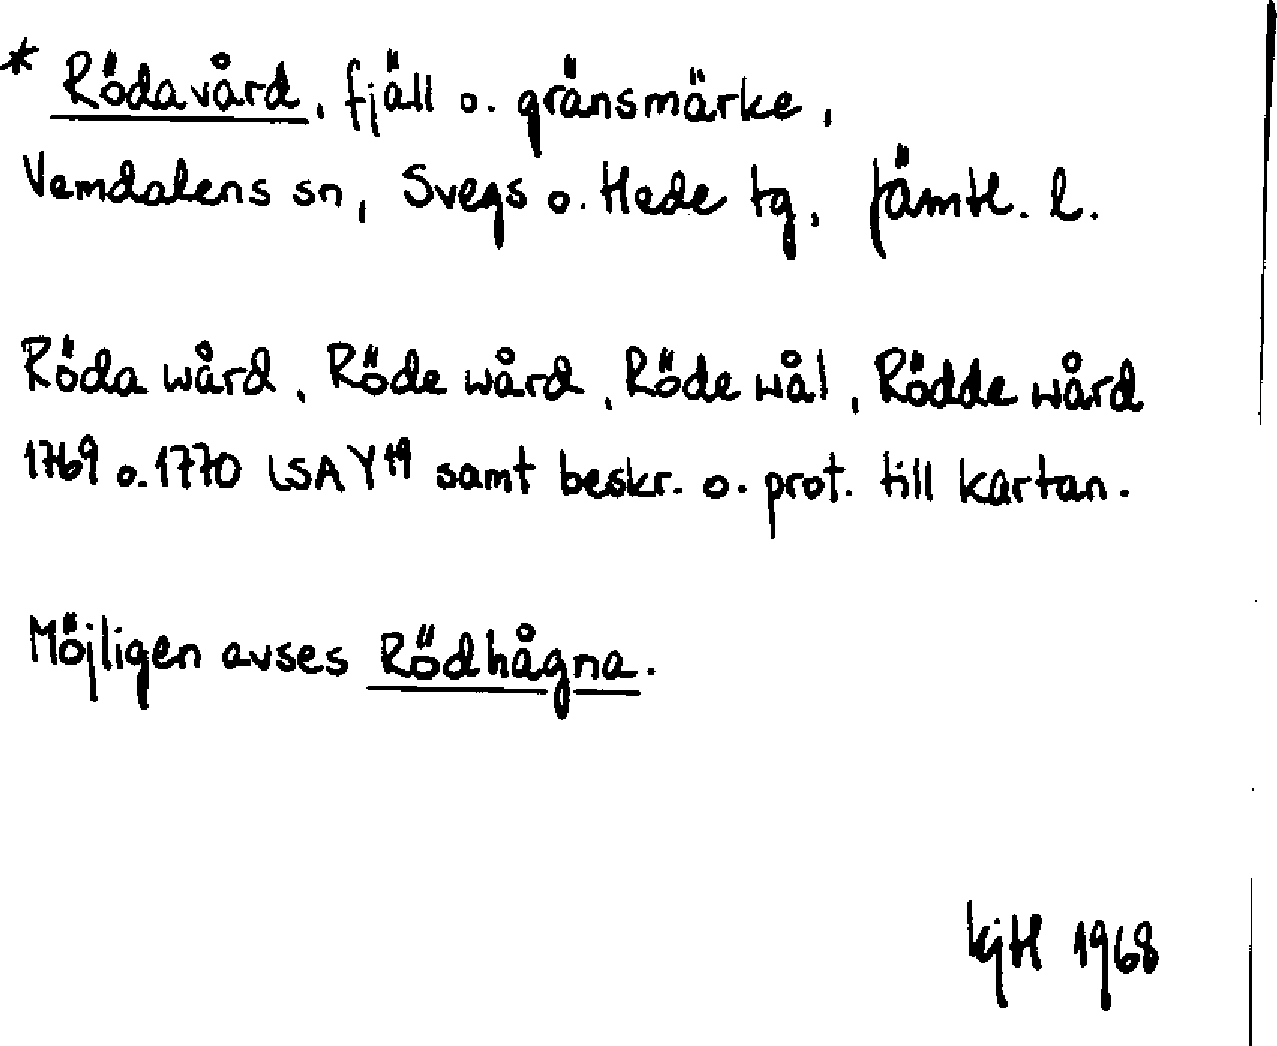 * Rödavård, fjäll o. gränsmärke,
Vemdalens sn, Svegs o. Hede tg, Jämtl. l.
Röda wård, Röde wård, Röde wål, Rödde wård
1769 o. 1770 LSA Y19 samt beskr. o. prot. till kartan.
Möjligen avses Rödhågna.
KjH 1968